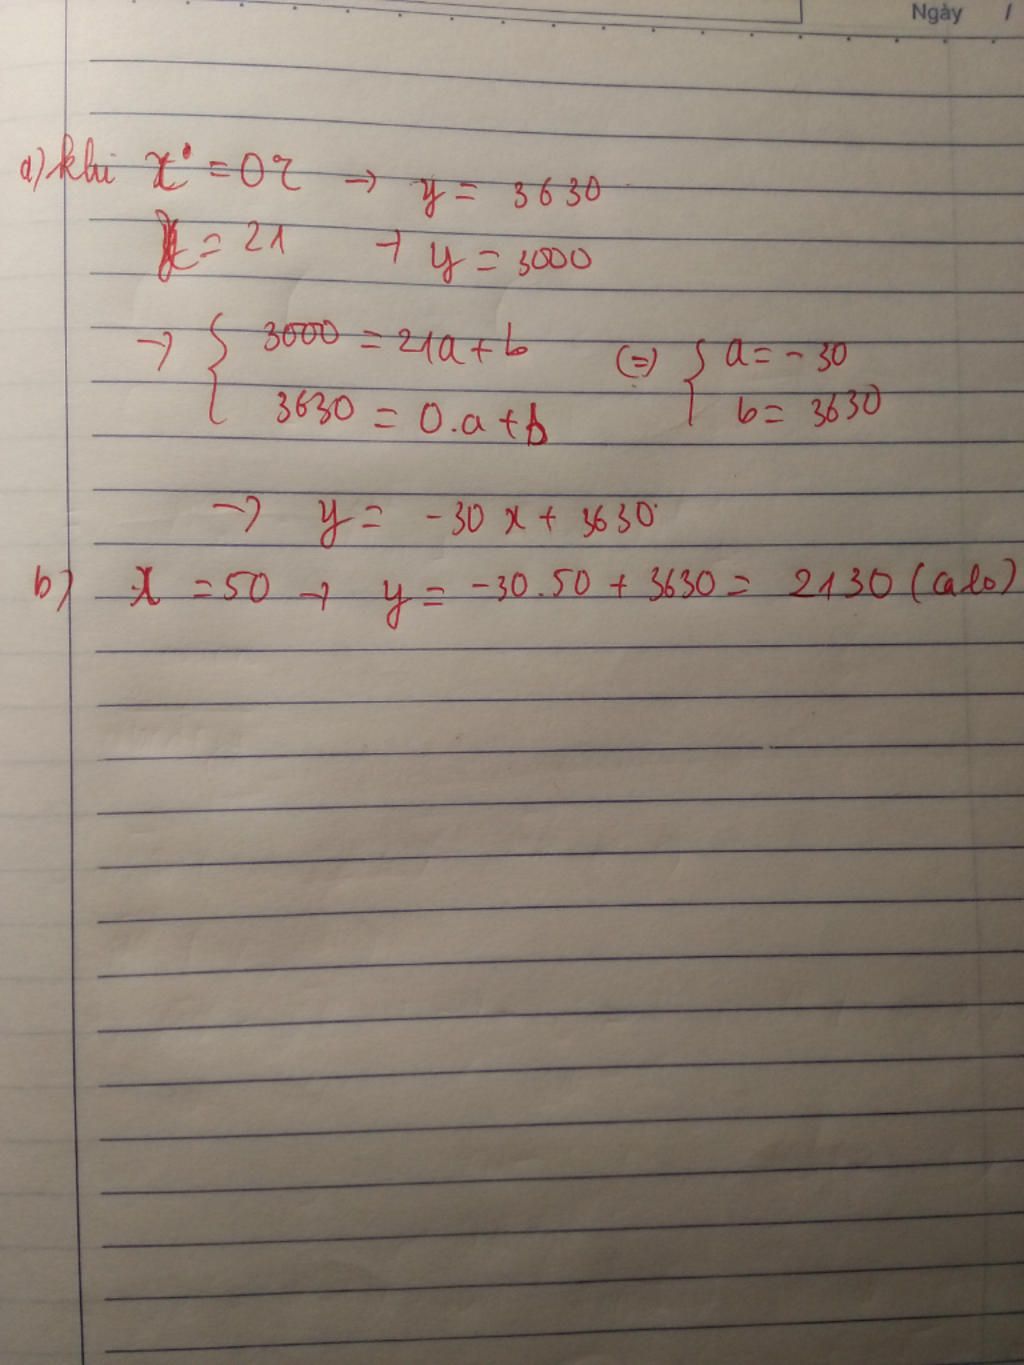 Ngày /
a) khi x = 0 → y = 3630
x = 21 → y = 3000
→ { 3000 = 21a + b (=) { a = -30
3630 = 0.a + b b = 3630
→ y = -30x + 3630
b) x = 50 → y = -30.50 + 3630 = 2130 (calo)